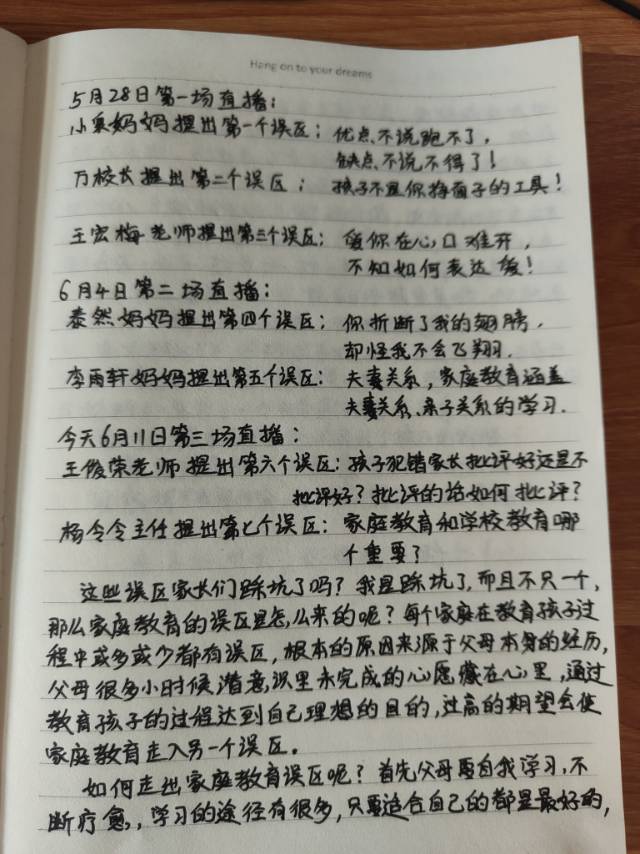 Hang on to your dreams
5月28日第一场直播：
小泉妈妈提出第一个误区：优点不说跑不了，
缺点不说不得了！
万校长提出第二个误区：孩子不是你挣面子的工具！
王宏梅老师提出第三个误区：爱你在心口难开，
不知如何表达爱！
6月4日第二场直播：
泰然妈妈提出第四个误区：你折断了我的翅膀，
却怪我不会飞翔.
李雨轩妈妈提出第五个误区：夫妻关系，家庭教育涵盖
夫妻关系、亲子关系的学习.
今天6月11日第三场直播：
王俊荣老师提出第六个误区：孩子犯错家长批评好还是不
批评好？批评的话如何批评？
杨令令主任提出第七个误区：家庭教育和学校教育哪
个重要？
这些误区家长们踩坑了吗？我是踩坑了，而且不只一个，
那么家庭教育的误区是怎么来的呢？每个家庭在教育孩子过
程中或多或少都有误区，根本的原因来源于父母本身的经历，
父母很多小时候潜意识里未完成的心愿藏在心里，通过
教育孩子的过程达到自己理想的目的，过高的期望会使
家庭教育走入另一个误区。
如何走出家庭教育误区呢？首先父母要自我学习，不
断疗愈，学习的途径有很多，只要适合自己的都是最好的，